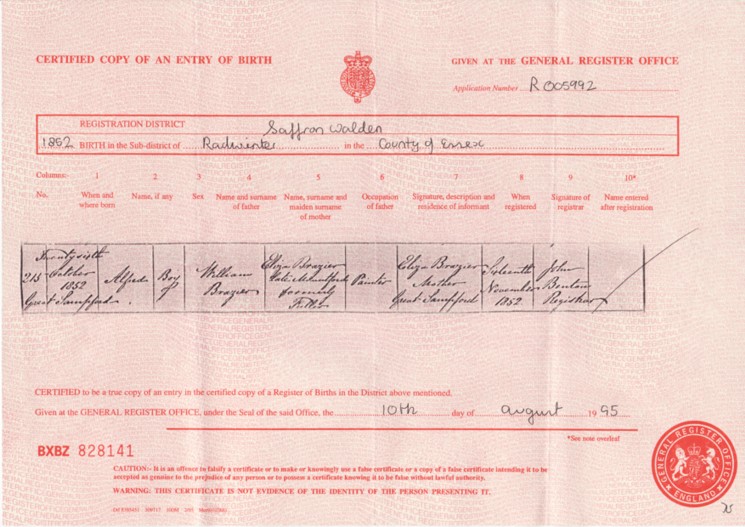 CERTIFIED COPY OF AN ENTRY OF BIRTH
GIVEN AT THE GENERAL REGISTER OFFICE
Application Number R 005992
REGISTRATION DISTRICT Saffron Walden
1852 BIRTH in the Sub-district of Radwinter in the County of Essex
Columns: 1 2 3 4 5 6 7 8 9 10*
No. When and where born Name, if any Sex Name and surname of father Name, surname and maiden surname of mother Occupation of father Signature, description and residence of informant When registered Signature of registrar Name entered after registration
215 Twenty sixth October 1852 Great Sampford Alfred Boy William Brazier Eliza Brazier formerly Fuller Painter Eliza Brazier Mother Great Sampford Sixteenth November 1852 John Registrar
CERTIFIED to be a true copy of an entry in the certified copy of a Register of Births in the District above mentioned.
Given at the GENERAL REGISTER OFFICE, under the Seal of the said Office, the 10th day of August 1995
*See note overleaf
BXBZ 828141
CAUTION:- It is an offence to falsify a certificate or to make or knowingly use a false certificate or a copy of a false certificate intending it to be
accepted as genuine to the prejudice of any person or to possess a certificate knowing it to be false without lawful authority.
WARNING: THIS CERTIFICATE IS NOT EVIDENCE OF THE IDENTITY OF THE PERSON PRESENTING IT.
GENERAL REGISTER OFFICE
ENGLAND